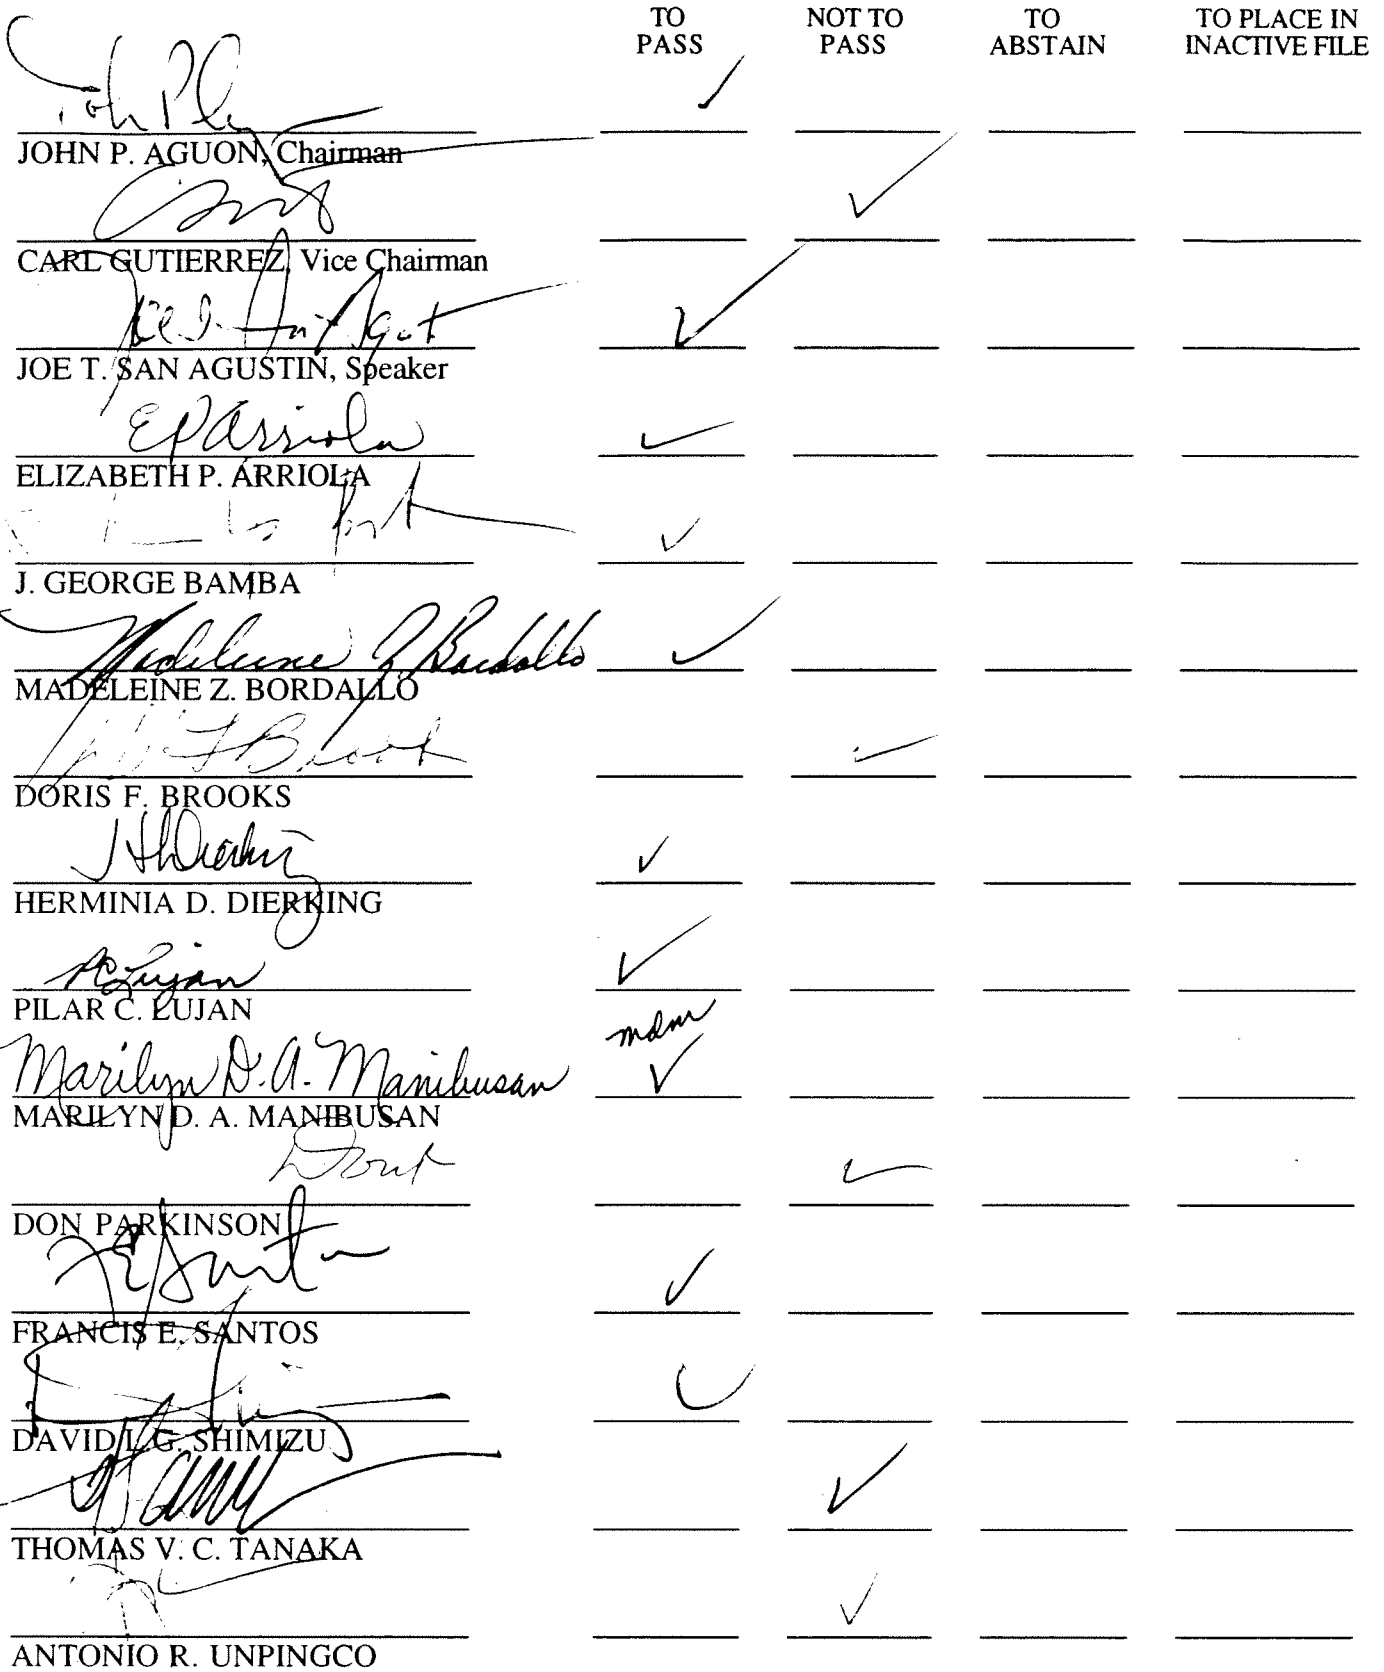 TO PASS NOT TO PASS TO ABSTAIN TO PLACE IN INACTIVE FILE
JOHN P. AGUON, Chairman
CARL GUTIERREZ, Vice Chairman
JOE T. SAN AGUSTIN, Speaker
EP Arriola
ELIZABETH P. ARRIOLA
J. GEORGE BAMBA
Madeleine Z Bordallo
MADELEINE Z. BORDALLO
DORIS F. BROOKS
HERMINIA D. DIERKING
PC Lujan
PILAR C. LUJAN
mdm
Marilyn D.A. Manibusan
MARILYN D. A. MANIBUSAN
DON PARKINSON
FRANCIS E. SANTOS
DAVID L.G. SHIMIZU
THOMAS V. C. TANAKA
ANTONIO R. UNPINGCO